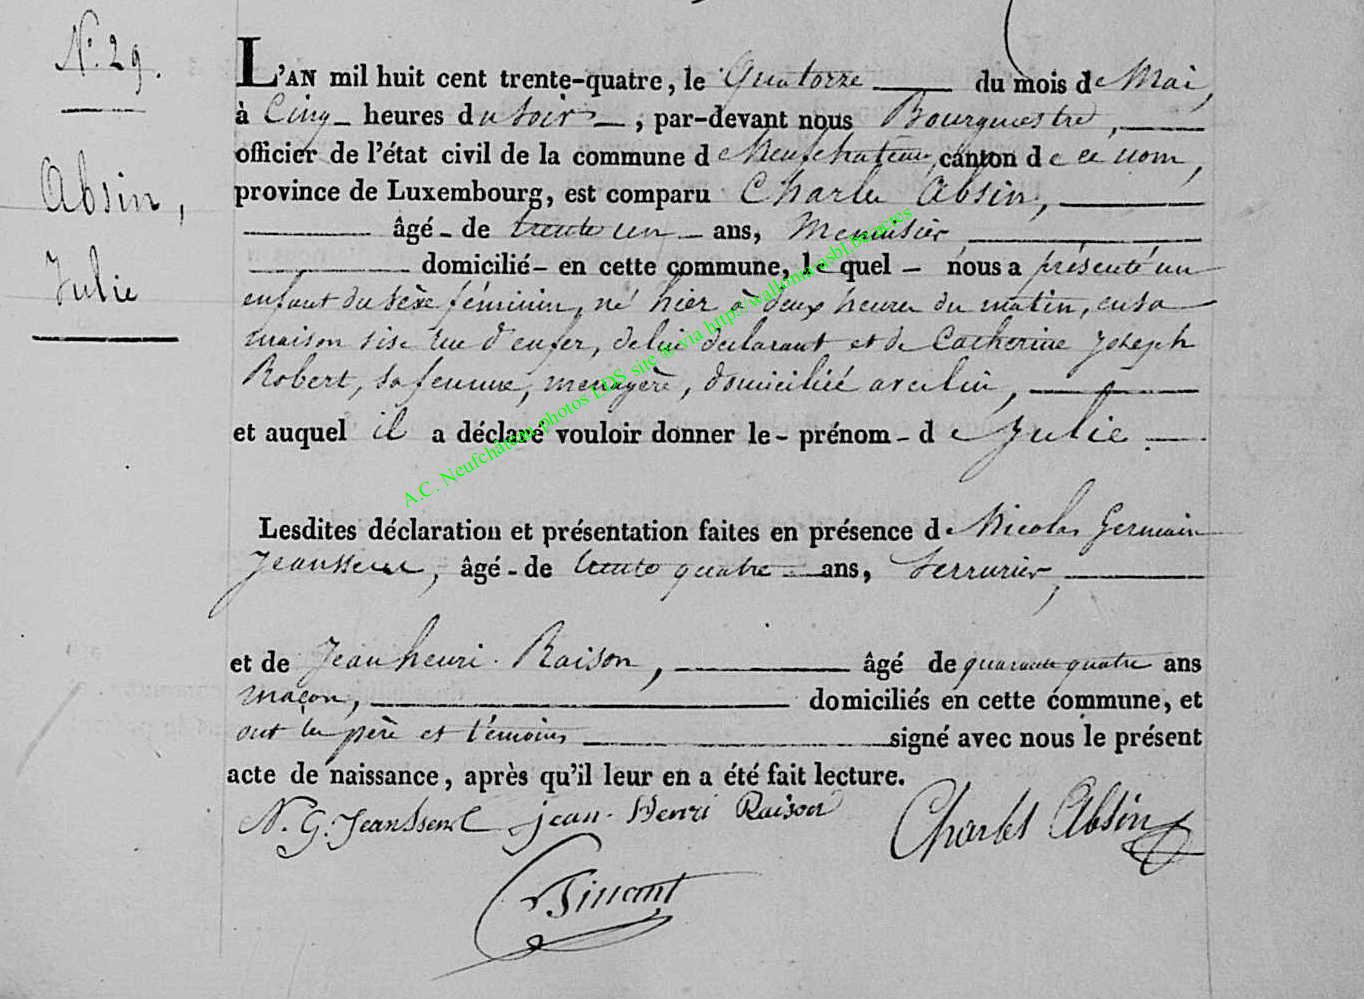 N.° 29.
Absin,
Julie
L'AN mil huit cent trente-quatre, le Quatorze du mois de Mai,
à Cinq heures du Soir, par-devant nous Bourgmestre,
officier de l'état civil de la commune de Neufchateau, canton de ce nom,
province de Luxembourg, est comparu Charles Absin,
âgé - de trente un - ans, Menuisier,
domicilié - en cette commune, lequel - nous a présenté un
enfant du sèxe féminin, né hier à deux heures du matin, en sa
maison sise rue d'enfer, de lui déclarant et de Catherine Joseph
Robert, sa femme, menagère, domiciliée avec lui,
et auquel il a déclaré vouloir donner le - prénom - de Julie.
Lesdites déclaration et présentation faites en présence de Nicolas Germain
Jeanssene, âgé - de trente quatre ans, Serrurier,
et de Jean henri Raison, âgé de quarante quatre ans
maçon, domiciliés en cette commune, et
ont les père et témoins signé avec nous le présent
acte de naissance, après qu'il leur en a été fait lecture.
N. G. Jeanssene jean-Henri Raison Charles Absin
A.C. Neufchâteau photos LDS site via http:/wallonia-asbl.be/actes